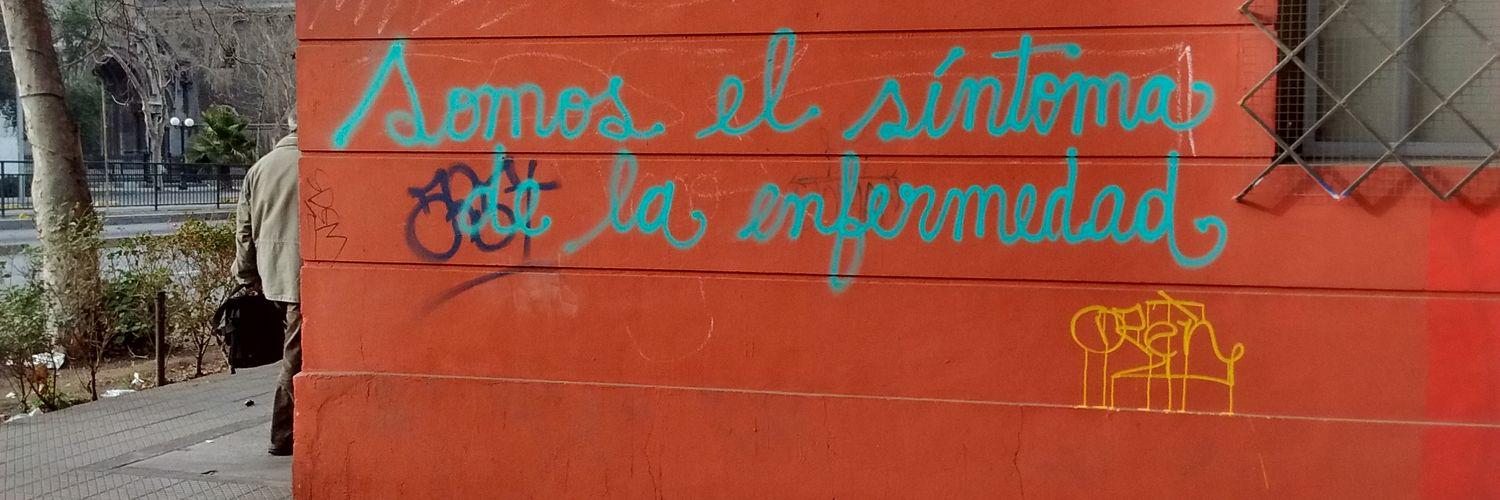 Somos el síntoma
de la enfermedad